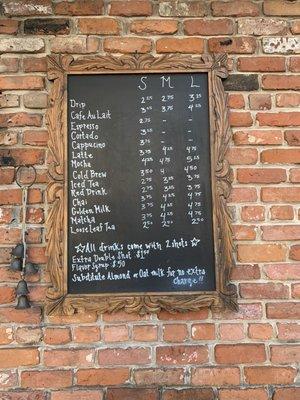 S M L
Drip 2.25 2.75 3.25
Cafe Au Lait 3.25 3.75 4.25
Espresso 2.75 - -
Cortado - -
Cappucino - -
Latte 3.75 4.25 4.75
Mocha 4.25 4.75 5.25
Cold Brew 3.50 4 4.50
Iced Tea 2.75 3.25
Red Drink
Chai 3.75 4.25 4.75
Golden Milk 3.75 4.25 4.75
Matcha 3.75 4.25 4.75
Loose Leaf Tea 2.50 2.50 2.50
☆All drinks come with 2 shots☆
Extra Double Shot $1.50
Flavor Syrup $.50
Substitute Almond or Oat milk for no extra
charge!!